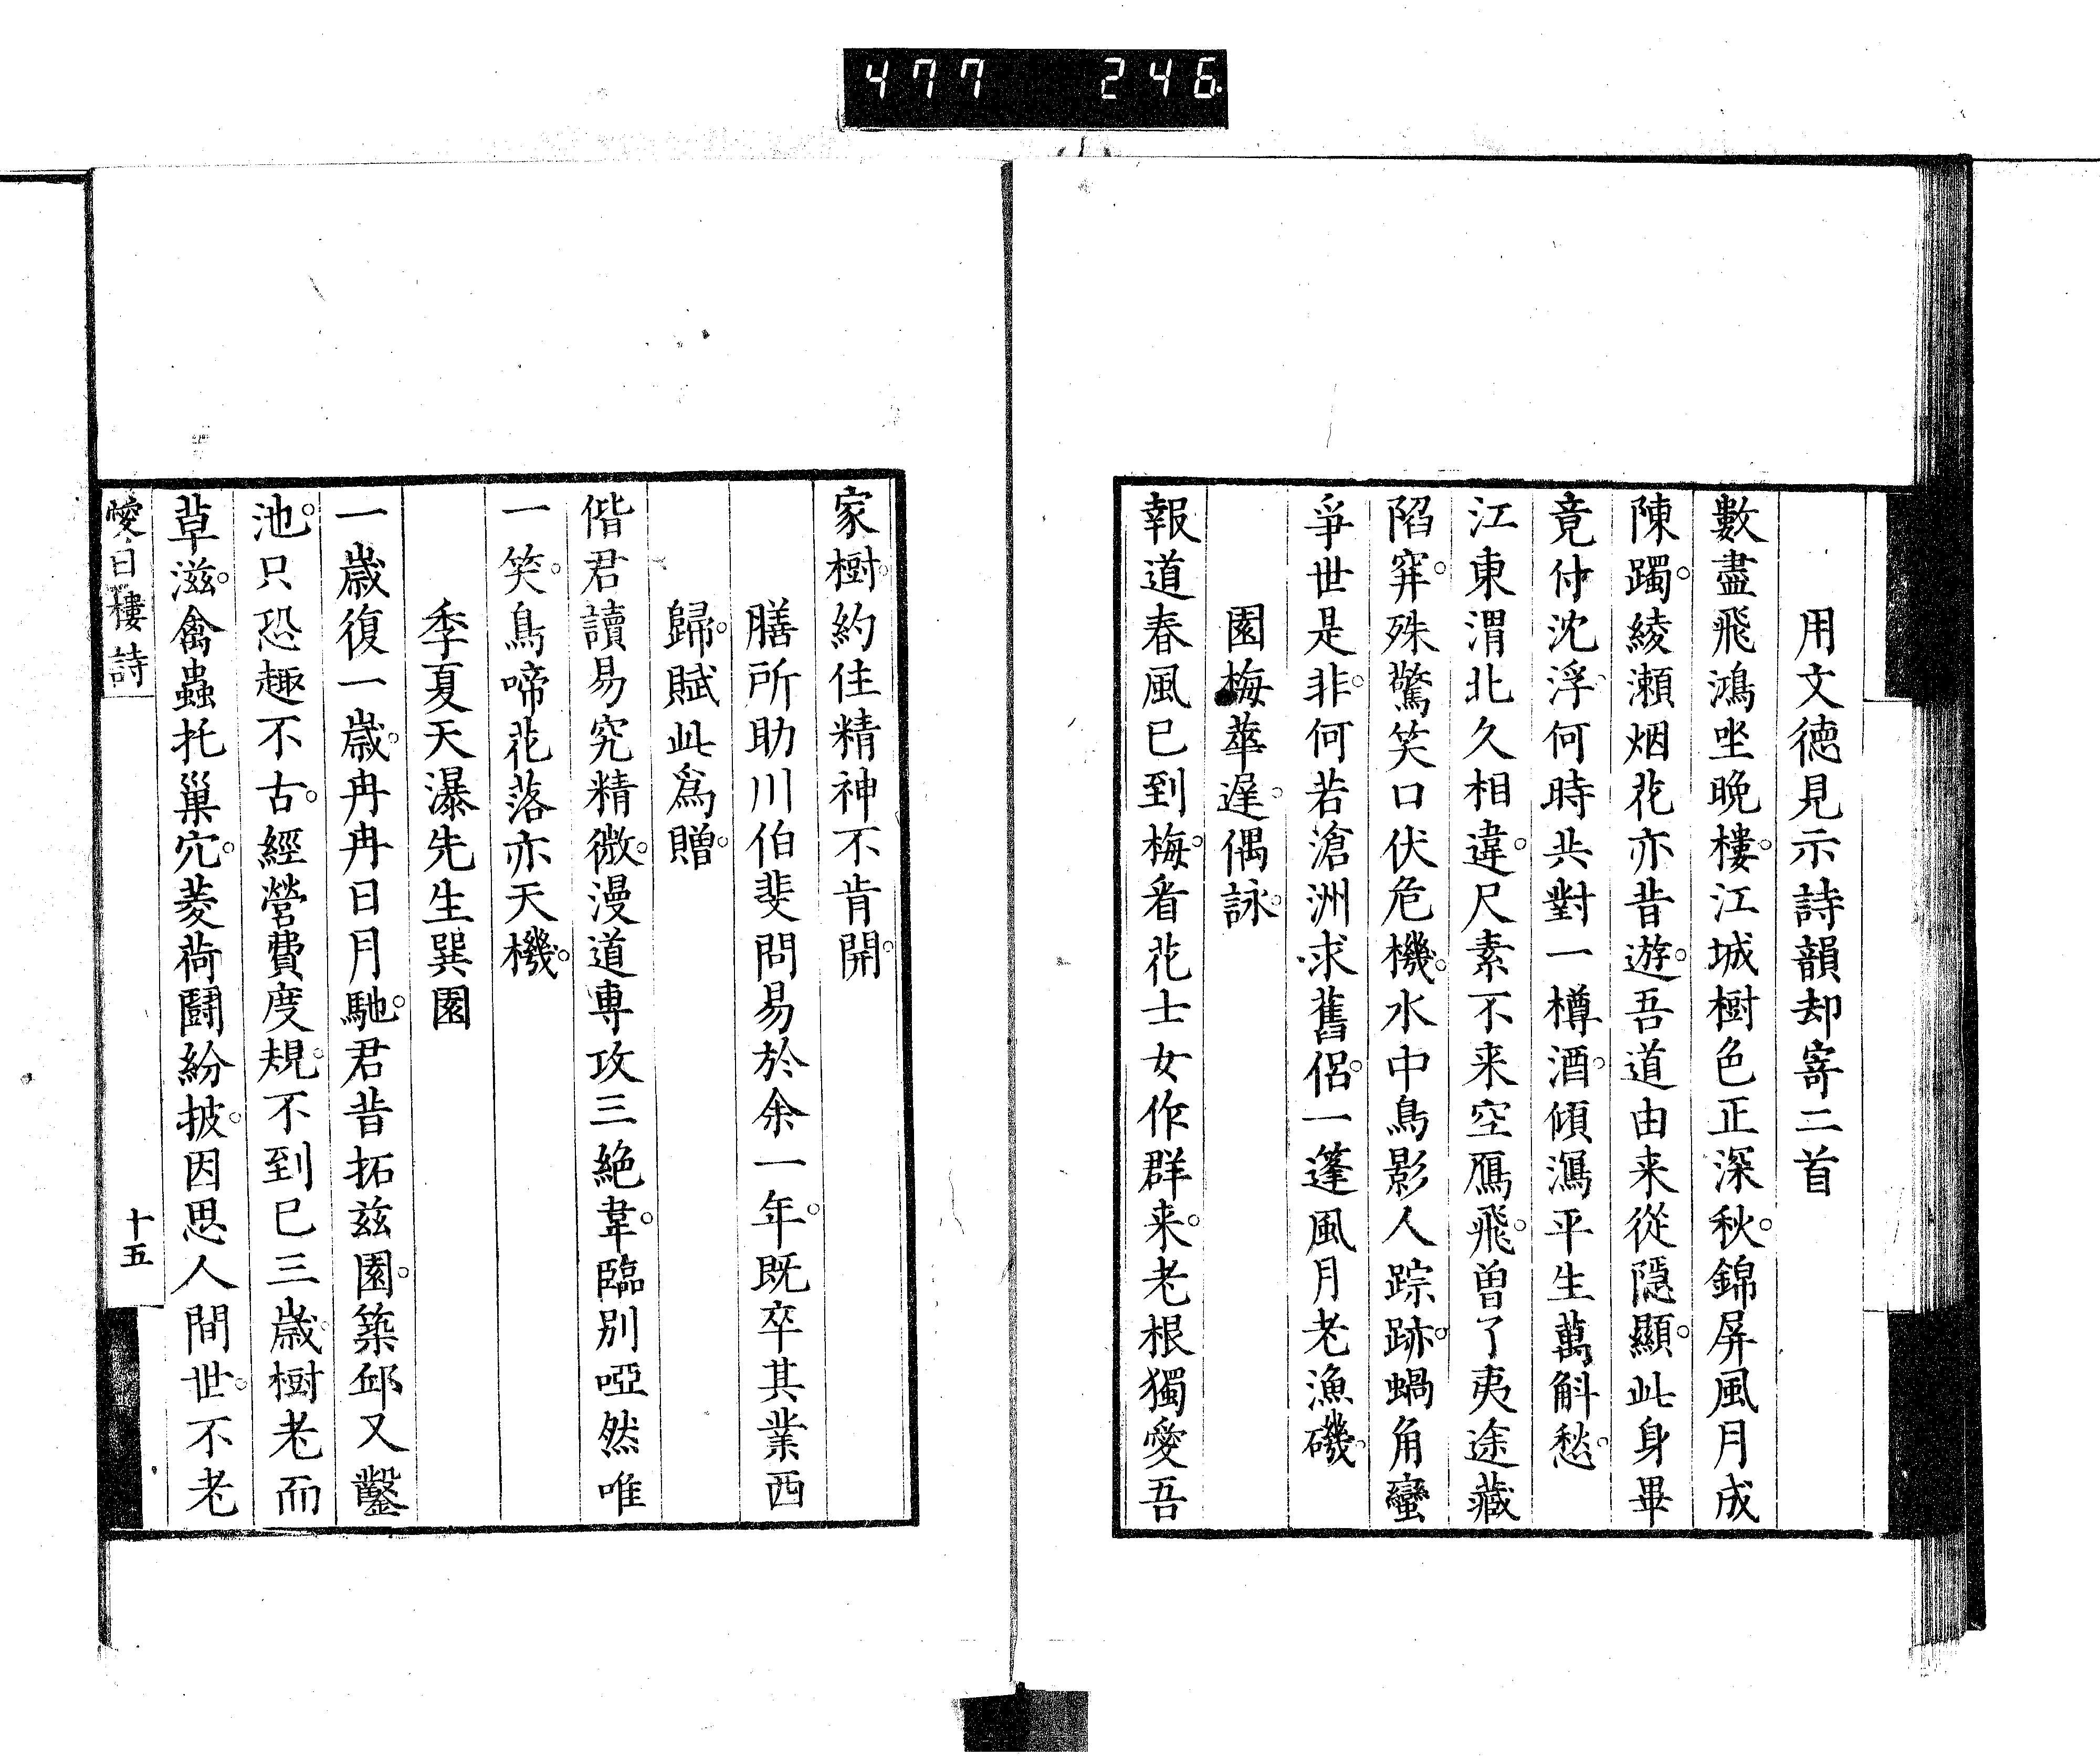 477 246
用文徳見示詩韻却寄二首
數盡飛鴻坐晩樓。江城樹色正深秋。錦屏風月成
陳躅。綾瀬烟花亦昔遊。吾道由来從隱顯。此身畢
竟付沈浮。何時共對一樽酒。傾瀉平生萬斛愁。
江東渭北久相違。尺素不来空鴈飛。曽了夷途藏
陷穽。殊驚笑口伏危機。水中鳥影人踪跡。蝸角蠻
爭世是非。何若滄洲求舊侶。一蓬風月老漁磯。
園梅華遲。偶詠。
報道春風已到梅。看花士女作群来。老根獨愛吾
家樹。約住精神不肯開。
膳所助川伯斐問易於余一年。既卒其業西
歸。賦此爲贈。
偕君讀易究精微。漫道専攻三絶韋。臨別啞然唯
一笑。鳥啼花落亦天機。
季夏天瀑先生巽園
一歳復一歳。冉冉日月馳。君昔拓茲園。築邱又鑿
池。只恐趣不古。經營費度規。不到已三歳。樹老而
草滋。禽蟲托巢穴。菱荷鬪紛披。因思人間世。不老
愛日樓詩
十五